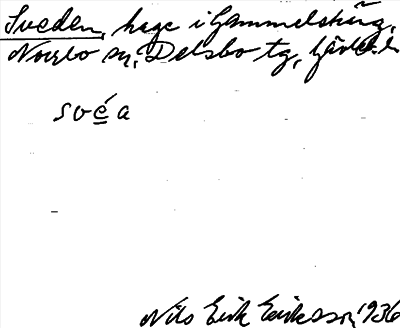 Sveden, hage i Gammelsträng,
Norrbo sn, Delsbo tg, Gävleb. l.
svéa
Nils Erik Eriksson, 1936